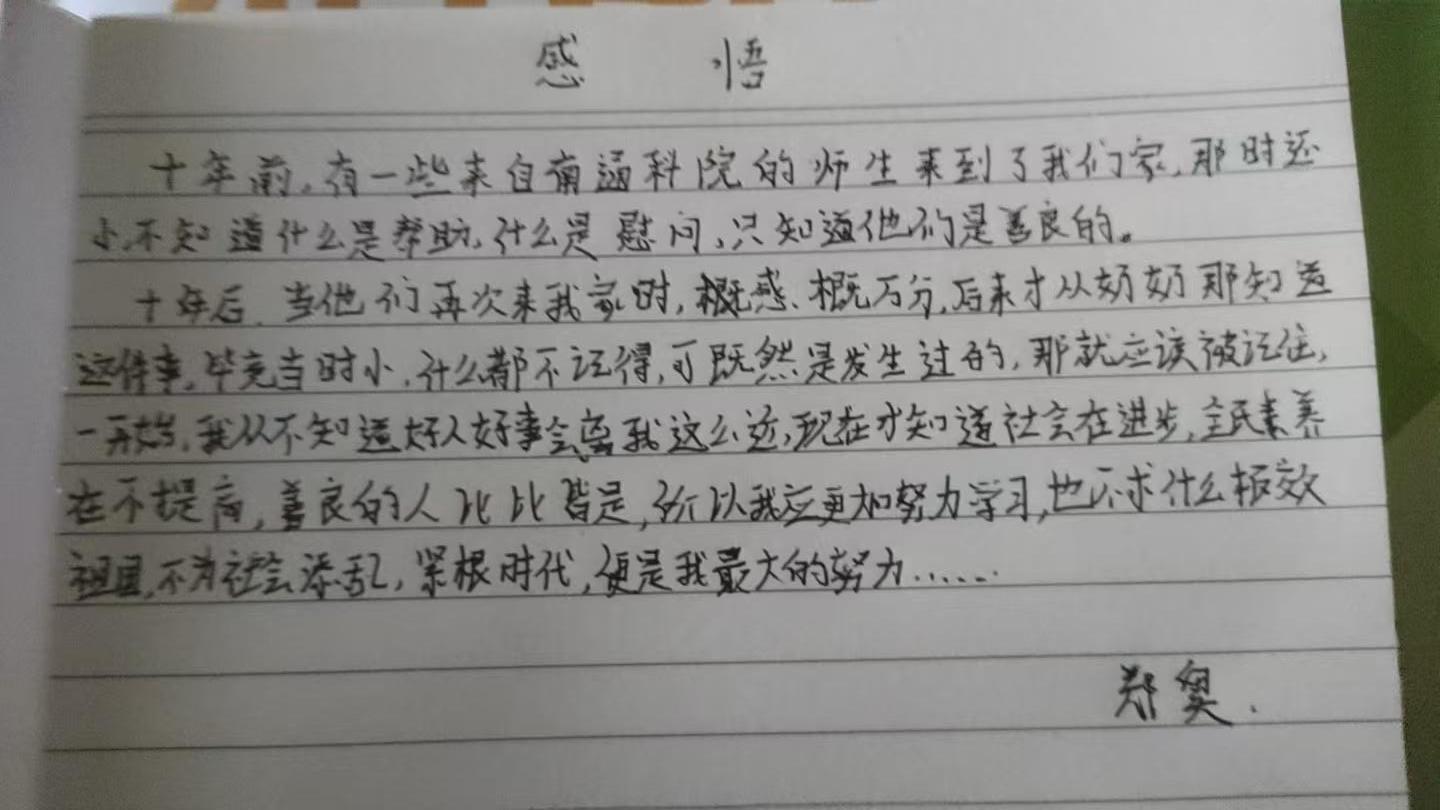 感 悟
十年前，有一些来自南通科院的师生来到了我们家，那时还
小，不知道什么是帮助，什么是慰问，只知道他们是善良的。
十年后，当他们再次来我家时，概感、概万分，后来才从奶奶那知道
这件事，毕竟当时小，什么都不记得，可既然是发生过的，那就应该被记住，
一开始，我从不知道好人好事会离我这么近，现在才知道社会在进步，全民素养
在不提高，善良的人比比皆是，所以我应更加努力学习，也不求什么报效
祖国，不为社会添乱，紧根时代，便是我最大的努力……
郑奥.